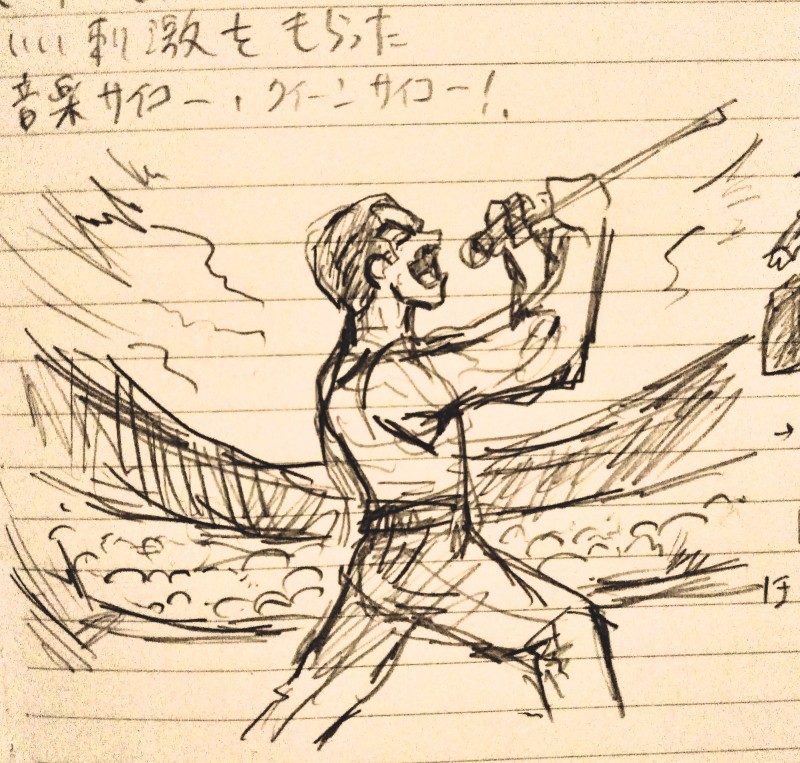 いい刺激をもらった
音楽サイコー、クイーンサイコー!.
→
ほ